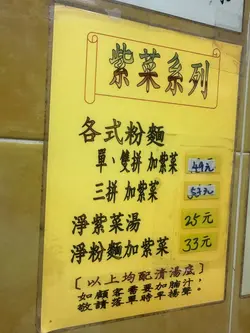 紫菜系列
各式粉麵
單、雙拼 加紫菜 49元
三拼 加紫菜 53元
淨紫菜湯 25元
淨粉麵加紫菜 33元
[以上均配清湯底]
如顧客需要加腩汁，
敬請落單時早揚聲。